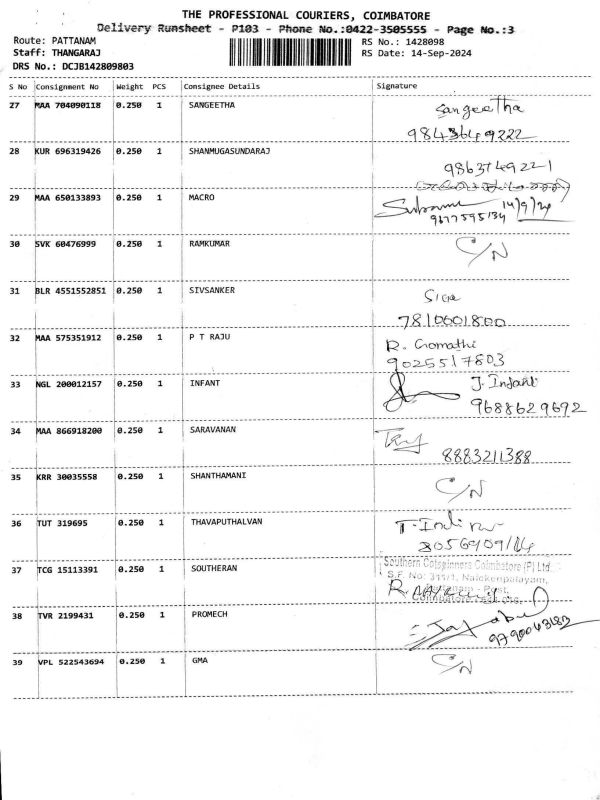 THE PROFESSIONAL COURIERS, COIMBATORE
Delivery Runsheet - P103 - Phone No.:0422-3505555 - Page No.:3
Route: PATTANAM RS No.: 1428098
Staff: THANGARAJ RS Date: 14-Sep-2024
DRS No.: DCJB142809803
S No Consignment No Weight PCS Consignee Details Signature
27 MAA 704090118 0.250 1 SANGEETHA Sangeetha
9843649222
28 KUR 696319426 0.250 1 SHANMUGASUNDARAJ
9863749221
29 MAA 650133893 0.250 1 MACRO 14/9/24
9677595134
30 SVK 60476999 0.250 1 RAMKUMAR C/N
31 BLR 4551552851 0.250 1 SIVSANKER Siva
7810001800
32 MAA 575351912 0.250 1 P T RAJU R. Gomathi
9025517803
33 NGL 200012157 0.250 1 INFANT J. Infant
9688629692
34 MAA 866918200 0.250 1 SARAVANAN
8883211388
35 KRR 30035558 0.250 1 SHANTHAMANI C/N
36 TUT 319695 0.250 1 THAVAPUTHALVAN
37 TCG 15113391 0.250 1 SOUTHERAN Southern Cotspinners Coimbatore (P) Ltd.
S.F. No: 311/1, Naickenpalayam,
38 TVR 2199431 0.250 1 PROMECH
9790043182
39 VPL 522543694 0.250 1 GMA C/N